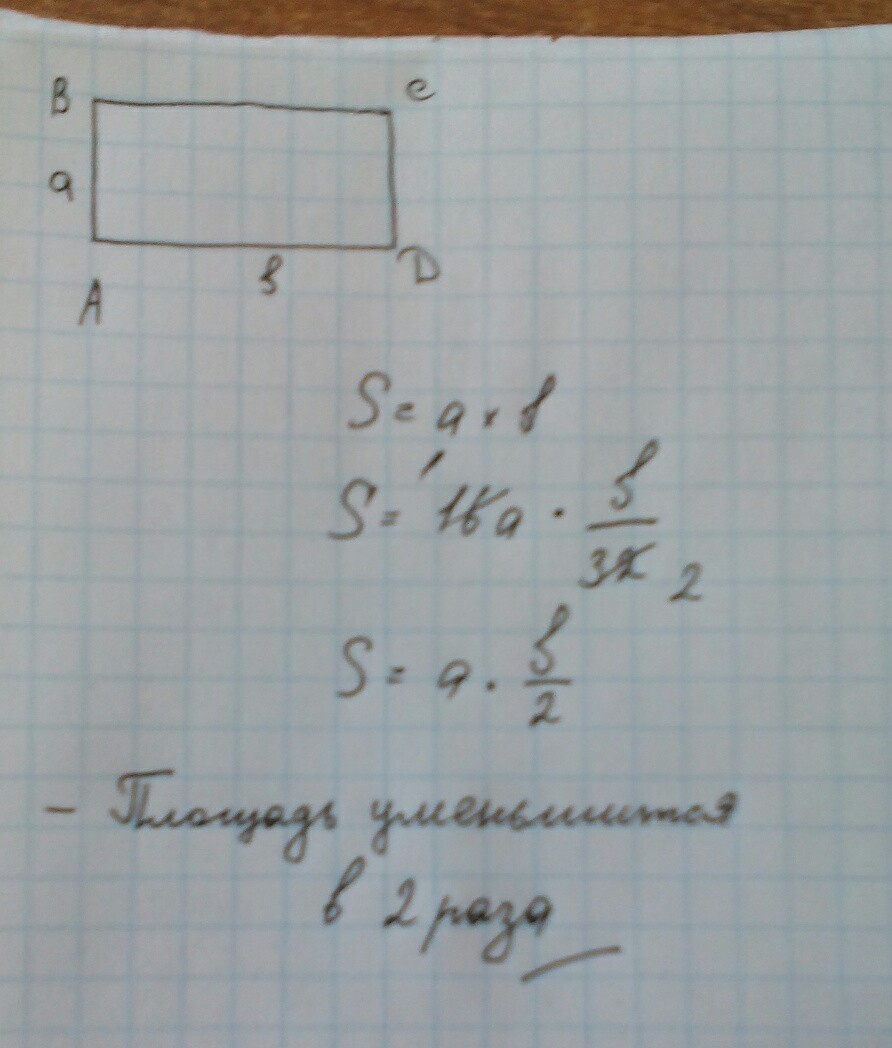 B C
a
A в D
S = a × в
S = 16a · в/32 1 2
S = a · в/2
– Площадь уменьшится
в 2 раза